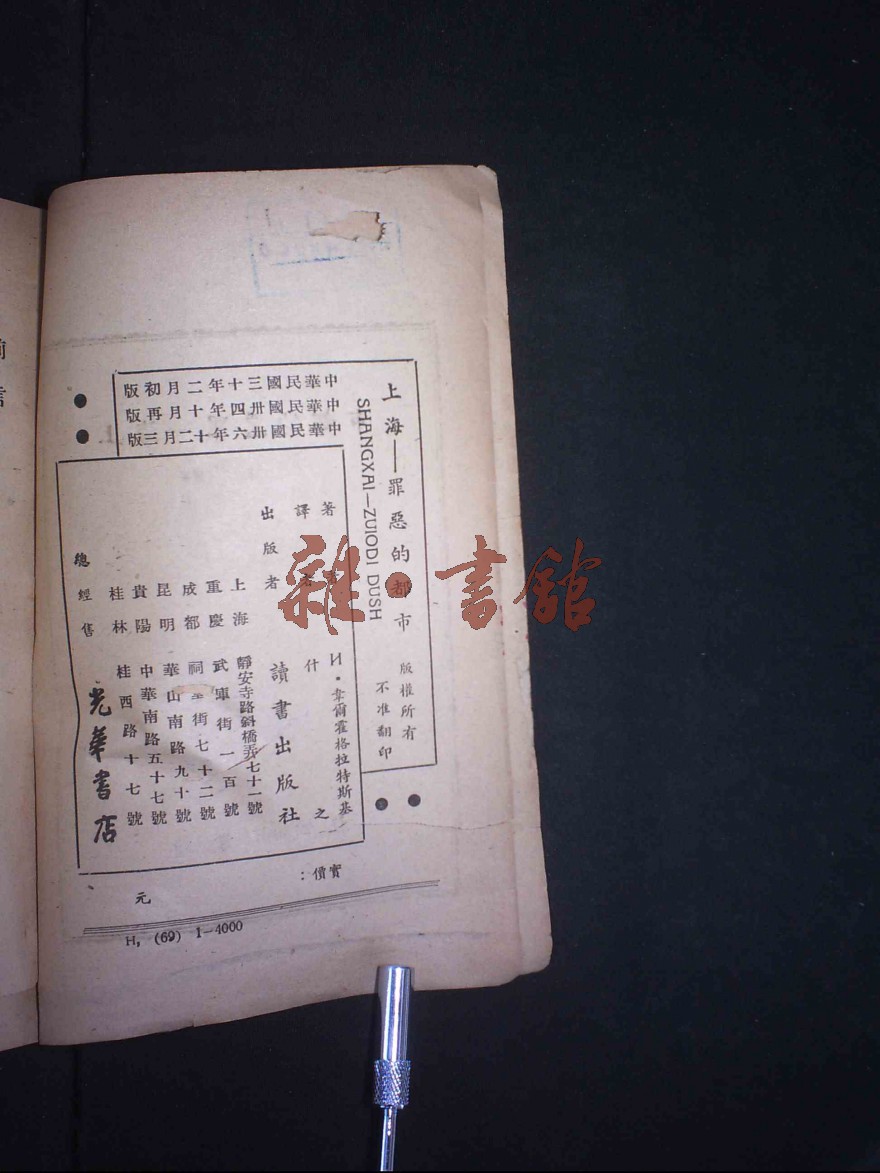 上海—罪惡的都市
SHANGXAI—ZUIODI DUSH
版權所有
不准翻印
中華民國三十年二月初版
中華民國卅四年十月再版
中華民國卅六年十二月三版
著者 И·韋爾霍格拉特斯基
譯者 什之
出版者 讀書出版社
上海 靜安寺路斜橋弄七十一號
重慶 武庫街一百號
成都 祠堂街七十二號
昆明 華山南路九十號
貴陽 中華南路五十七號
桂林 桂西路十七號
總經售 光華書店
實價: 元
H, (69) 1—4000
雜·書館